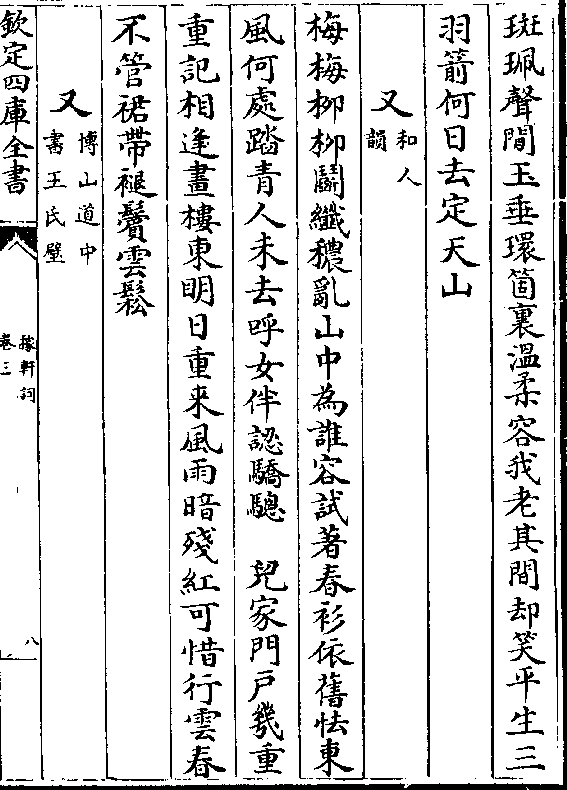 斑珮聲間玉垂環箇裏溫柔容我老其間却笑平生三
羽箭何日去定天山
又和人韻
梅梅柳柳鬭纖穠亂山中為誰容試著春衫依舊怯東
風何處踏青人未去呼女伴認驕驄　兒家門戶幾重
重記相逢畫樓東明日重来風雨暗殘紅可惜行雲春
不管裙帶褪鬢雲鬆
又博山道中書王氏壁
欽定四庫全書
稼軒詞
卷三
八